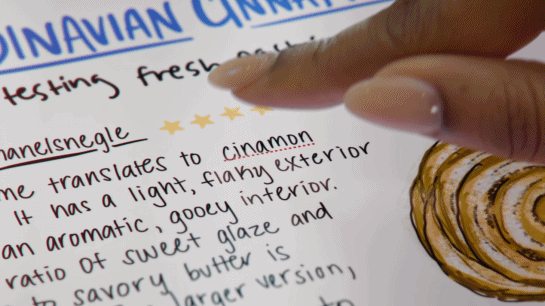 DINAVIAN CINNAM
testing fresh
hanelsnegle
me translates to cinamon
It has a light, flaky exterior
an aromatic, gooey interior.
ratio of sweet glaze and
to savory butter is
larger version,
to